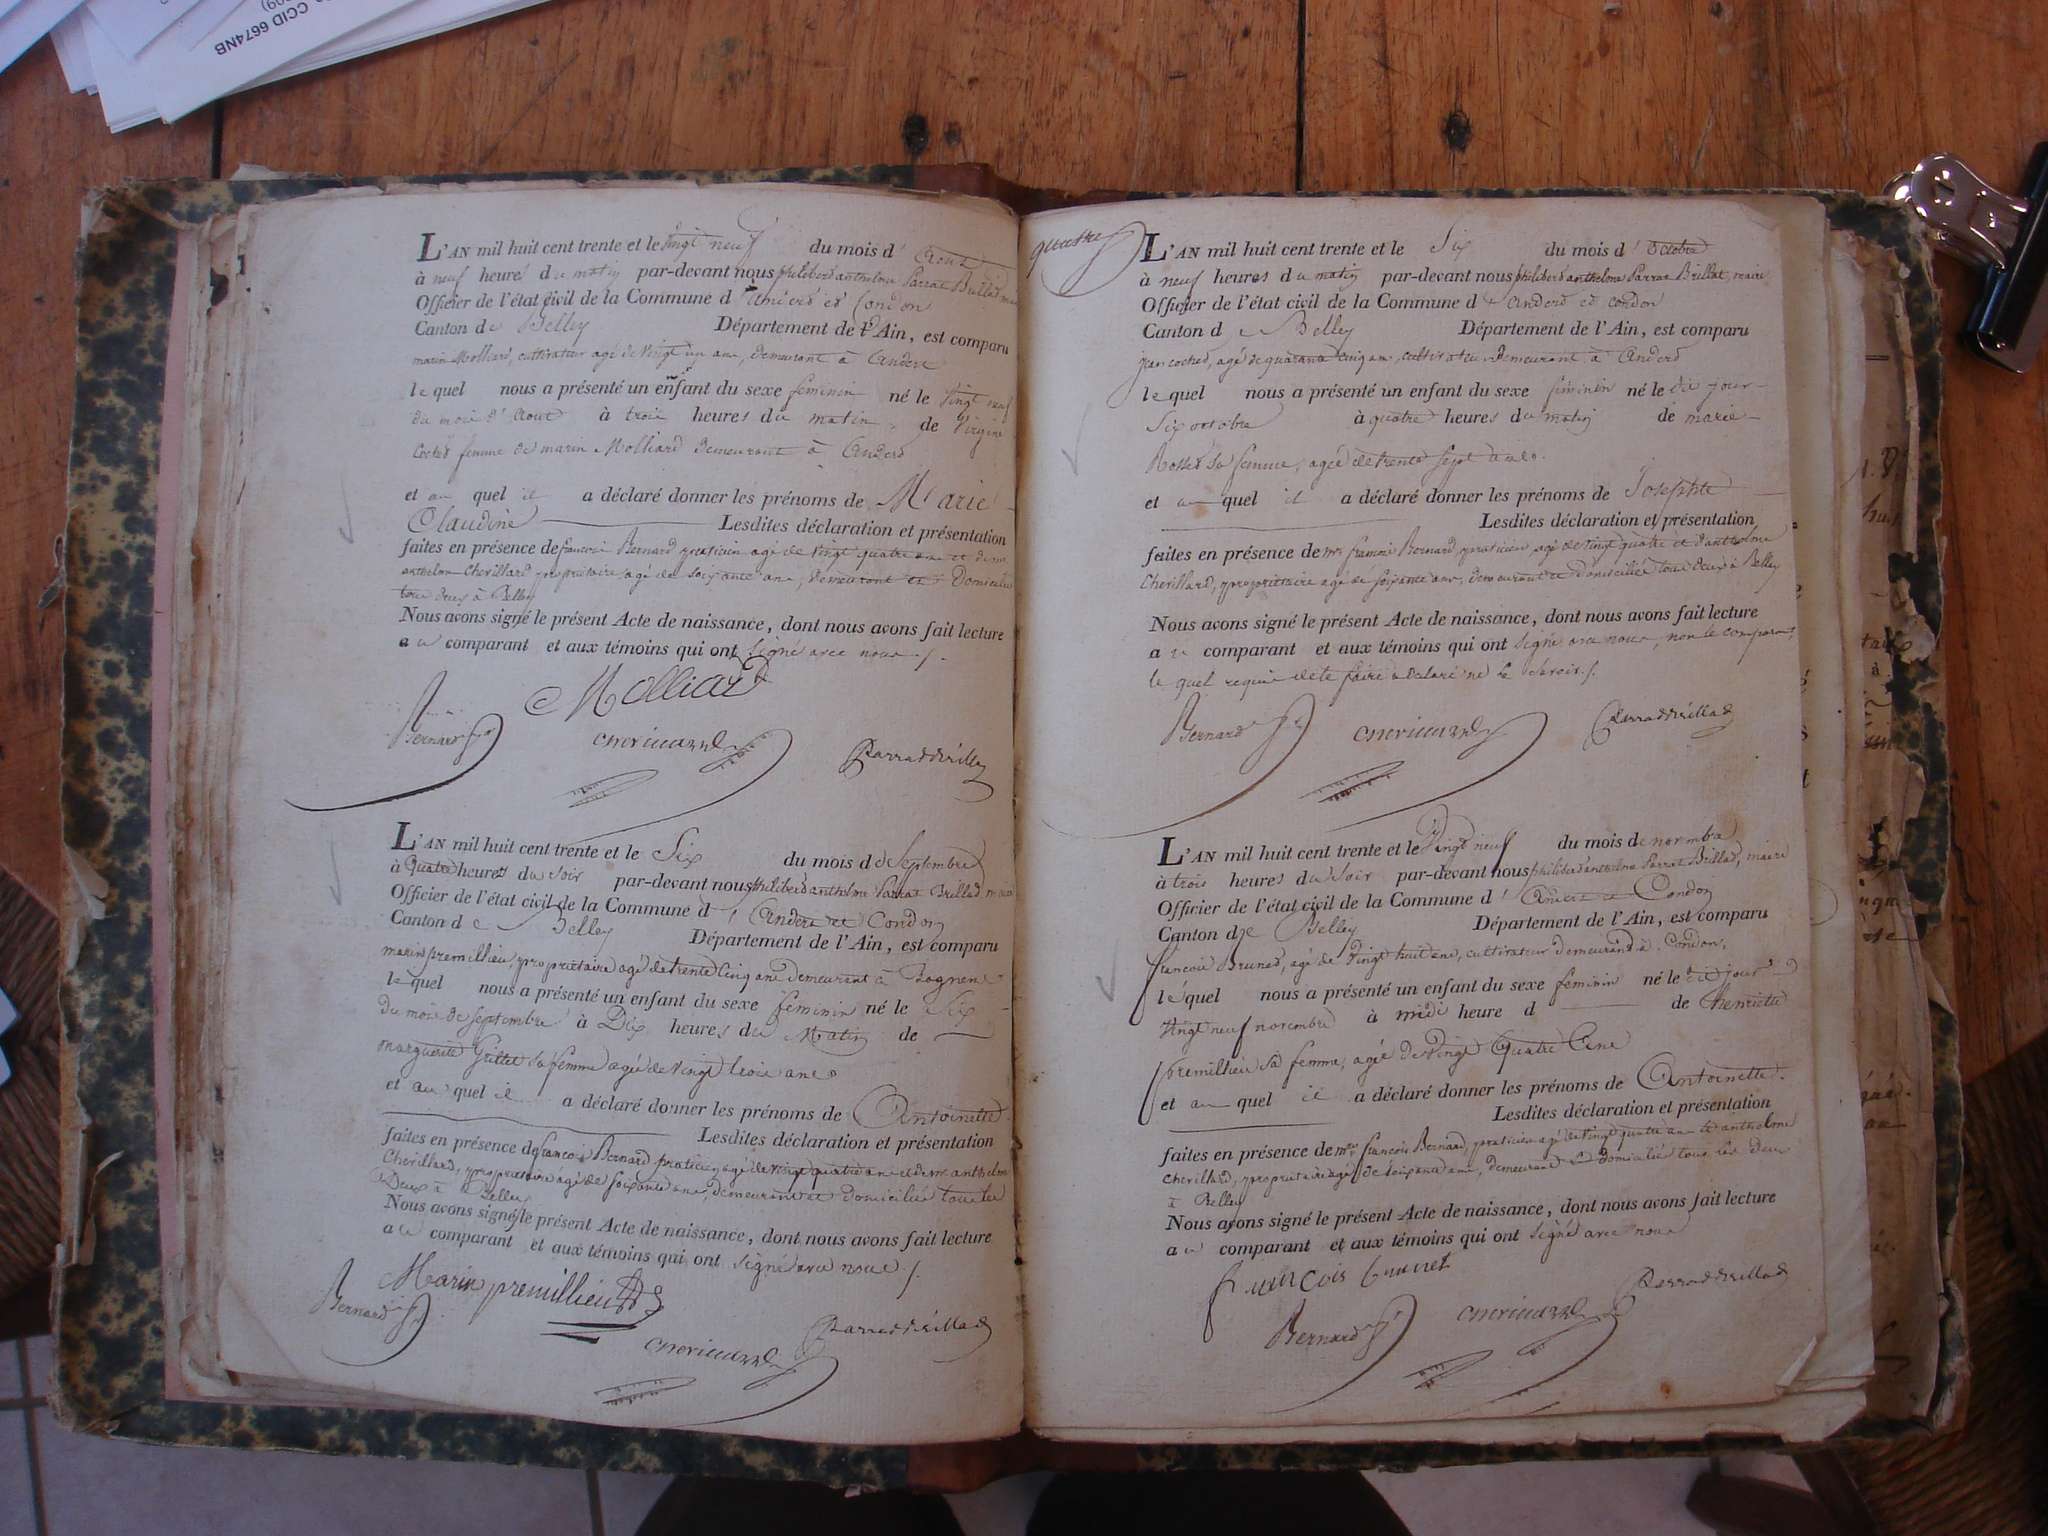 CCID 6674NB
L'AN mil huit cent trente et le vingt neuf du mois d' Aout
à neuf heures du matin par-devant nous philiberd anthelme Parrat Brillat
Officier de l'état civil de la Commune d' Anderd et Condon
Canton de Belley Département de l'Ain, est comparu
marin Molliard, cultivateur agé de vingt un ans, demeurant à Anderd
lequel nous a présenté un enfant du sexe feminin né le vingt neuf
du mois d' Aout à trois heures du matin, de Virginie
Coched femme de marin Molliard demeurant à Anderd
et au quel il a déclaré donner les prénoms de Marie
Claudine Lesdites déclaration et présentation
faites en présence de francois Bernard praticien agé de vingt quatre ans et de mr
anthelme Cherillard propriétaire agé de soixante ans, demeurant et Domiciliés
tous deux à Belley
Nous avons signé le présent Acte de naissance, dont nous avons fait lecture
au comparant et aux témoins qui ont signé avec nous /.
Molliard
Bernard cherillard Parrad Brillad
L'AN mil huit cent trente et le Six du mois d de Septembre
à Quatre heures du soir par-devant nous philiberd anthelme Parrat Brillad, maire
Officier de l'état civil de la Commune d' Anderd et Condon
Canton de Belley Département de l'Ain, est comparu
marin premillieu, propriétaire agé de trente cinq ans demeurant à Bognens
lequel nous a présenté un enfant du sexe feminin né le Six
du mois de septembre à Dix heures du Matin de
marguerite Grillet sa femme agée de vingt trois ans
et au quel il a déclaré donner les prénoms de Antoinette
Lesdites déclaration et présentation
faites en présence de francois Bernard praticien agé de vingt quatre ans et de mr anthelme
Cherillard, propriétaire agé de soixante ans, demeurant et domicilié tous les
Deux à Belley
Nous avons signé le présent Acte de naissance, dont nous avons fait lecture
au comparant et aux témoins qui ont signé avec nous /.
Marin premillieu
Bernard cherillard Parrad Brillad
quatre
L'AN mil huit cent trente et le Six du mois d' octobre
à neuf heures du matin par-devant nous philiberd anthelme Parrat Brillat, maire
Officier de l'état civil de la Commune d' Anderd et condon
Canton de Belley Département de l'Ain, est comparu
jean coched, agé de quarante cinq ans, cultivateur demeurant à Anderd
lequel nous a présenté un enfant du sexe feminin né le dit jour
Six octobre à quatre heures du matin de marie
Rosset sa femme, agée de trente sept ans.
et au quel il a déclaré donner les prénoms de Josephte
Lesdites déclaration et présentation
faites en présence de mrs francois Bernard, praticien agé de vingt quatre et d'anthelme
Cherillard, propriétaire agé de soixante ans, demeurant et domiciliés tous deux à Belley
Nous avons signé le présent Acte de naissance, dont nous avons fait lecture
au comparant et aux témoins qui ont signé avec nous, non le comparant
le quel requis de le faire a déclaré ne le savoir /.
Bernard cherillard Parrad Brillad
L'AN mil huit cent trente et le vingt neuf du mois de novembre
à trois heures du soir par-devant nous philiberd anthelme Parrat Brillad, maire
Officier de l'état civil de la Commune d' Anderd et Condon
Canton de Belley Département de l'Ain, est comparu
francois Bruned, agé de vingt huit ans, cultivateur demeurand à Condon,
lequel nous a présenté un enfant du sexe feminin né le dit jour
vingt neuf novembre à midi heure d de Henriette
premillieu sa femme, agée de vingt Quatre Ans
et au quel il a déclaré donner les prénoms de Antoinette.
Lesdites déclaration et présentation
faites en présence de mrs francois Bernard, praticien agé de vingt quatre ans et anthelme
Cherillard, propriétaire agé de soixante ans, demeurand et domicilié tous les deux
à Belley
Nous avons signé le présent Acte de naissance, dont nous avons fait lecture
au comparant et aux témoins qui ont signés avec nous
francois Brunet
Bernard cherillard Parrad Brillad